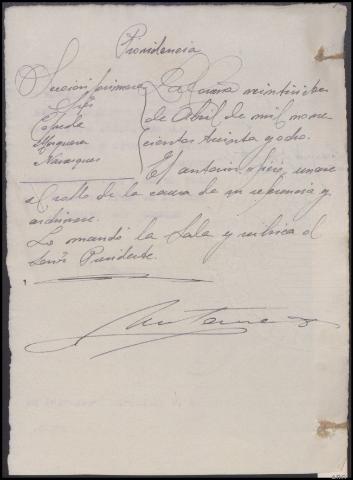 Providencia
Sección primera
Sres
Cepeda
Yrquera
Navarques
Palma veintiocho
de Abril de mil nove
cientos treinta y ocho.
El anterior oficio, unase
al rollo de la causa de su referencia y
archivese.
Lo mandó la Sala y rubrica el
Señor Presidente.